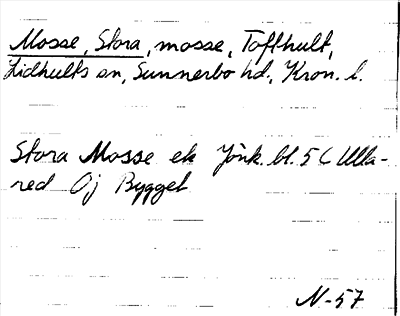 Mosse, Stora, mosse, Tofthult,
Lidhults sn, Sunnerbo hd., Kron. l.
Stora Mosse ek Jönk. bl. 5 C Ulla-
red Oj Bygget
N-57